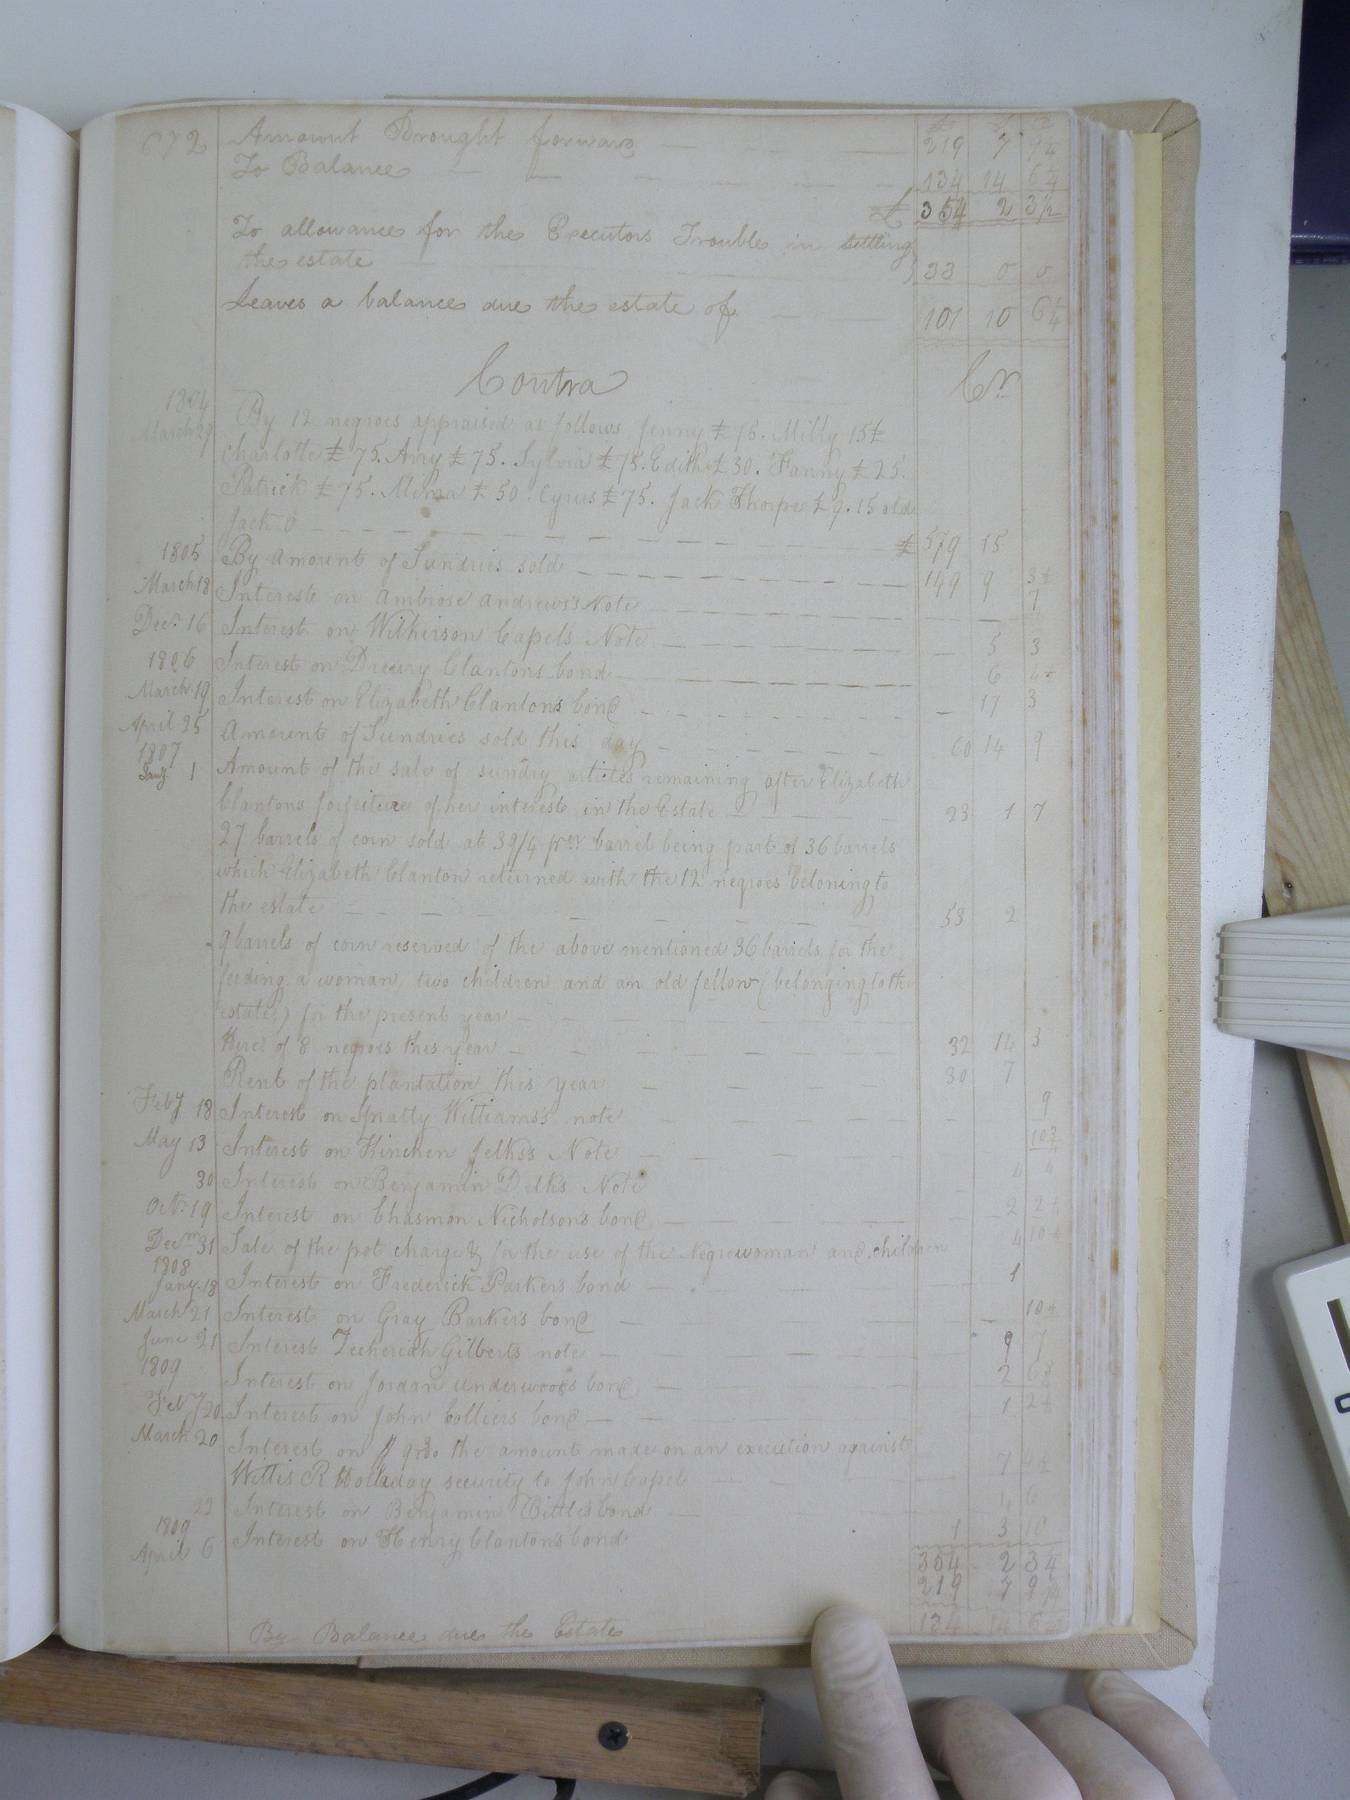 672 Amount Brought forward 219 7 9¼
To Balance 134 14 6¼
£ 354 2 3½
To allowance for the Executors Trouble in settling
the estate 33 0 0
Leaves a balance due the estate of 101 10 6¼
Contra Cr
1804 By 12 negroes appraised as follows Jenny £75. Milly 15£
March 29 Charlotte £75. Airy £75. Sylvia £75. Edith £30. Fanny £25.
Patrick £75. Mima £50. Cyrus £75. Jack Thorpe £9.15 old
Jack 0 £ 579 15
1805 By Amount of Sundries sold 149 9 3½
March 18 Interest on Ambrose Andrews's Note 7
Decr. 16 Interest on Wilkinson Capels Note 5 3
1806 Interest on Drewry Clantons bond 6
March 19 Interest on Elizabeth Clantons bond 17 3
April 25 Amount of Sundries sold this day 60 14 9
1807
Jany 1 Amount of the sale of sundry articles remaining after Elizabeth
Clantons forfeiture of her interest in the Estate 23 1 7
27 barrels of corn sold at 39/4 per barrel being part of 36 barrels
which Elizabeth Clanton returned with the 12 negroes beloning to
the estate 53 2
9 barrels of corn reserved of the above mentioned 36 barrels for the
feeding a woman, two children and an old fellow (belonging to the
estate) for the present year
Hire of 8 negroes this year 32 14 3
Rent of the plantation this year 30 7
Feby 18 Interest on Williams's note 9
May 13 Interest on Kinchen Jelks's Note 10¾
30 Interest on Benjamin Delks Note 4
Octr. 19 Interest on Chasmon Nicholson's bond 2 2½
Decm 31 Sale of the pot charged for the use of the Negrowoman and children 4 10½
1808
Jany. 18 Interest on Frederick Parkers bond 1
March 21 Interest on Gray Barkers bond 10½
June 21 Interest Zecheriah Gilberts note 9 7
1809 Interest on Jordan Underwoods bond 2 6¾
Feby 20 Interest on John Colliers bond 1 2½
March 20 Interest on the amount made on an execution against
Willis R Holladay security to John Capel 7
22 Interest on Benjamin Bittles bond 6
1809
April 6 Interest on Henry Clantons bond 1 3 10
354 2 3¼
219 7 9
By Balance due the Estate 134 14 6